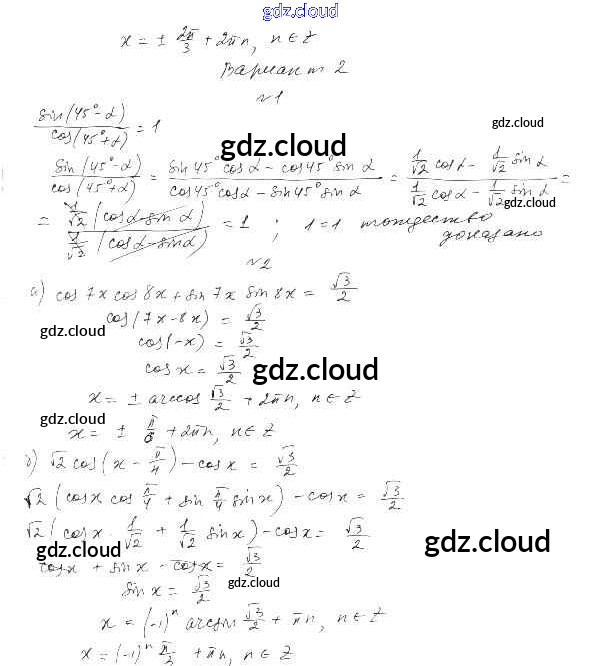 gdz.cloud
x = ± 2π/3 + 2πn, n ∈ Z
Вариант 2
№1
sin(45°-α)/cos(45°+α) = 1
gdz.cloud
gdz.cloud
sin(45°-α)/cos(45°+α) = (sin45°cosα - cos45°sinα)/(cos45°cosα - sin45°sinα) = (1/√2 cosα - 1/√2 sinα)/(1/√2 cosα - 1/√2 sinα) =
gdz.cloud
= 1/√2 (cosα - sinα) / 1/√2 (cosα - sinα) = 1 ; 1=1 тождество
доказано
№2
а) cos7x cos8x + sin7x sin8x = √3/2
cos(7x-8x) = √3/2
gdz.cloud
cos(-x) = √3/2
cosx = √3/2
gdz.cloud
x = ± arccos √3/2 + 2πn, n ∈ Z
gdz.cloud
x = ± π/6 + 2πn, n ∈ Z
б) √2 cos(x - π/4) - cosx = √3/2
√2 (cosx cos π/4 + sin π/4 sinx) - cosx = √3/2
√2 (cosx · 1/√2 + 1/√2 sinx) - cosx = √3/2
gdz.cloud
gdz.cloud
cosx + sinx - cosx = √3/2
sinx = √3/2
gdz.cloud
x = (-1)ⁿ arcsin √3/2 + πn, n ∈ Z
x = (-1)ⁿ π/3 + πn, n ∈ Z